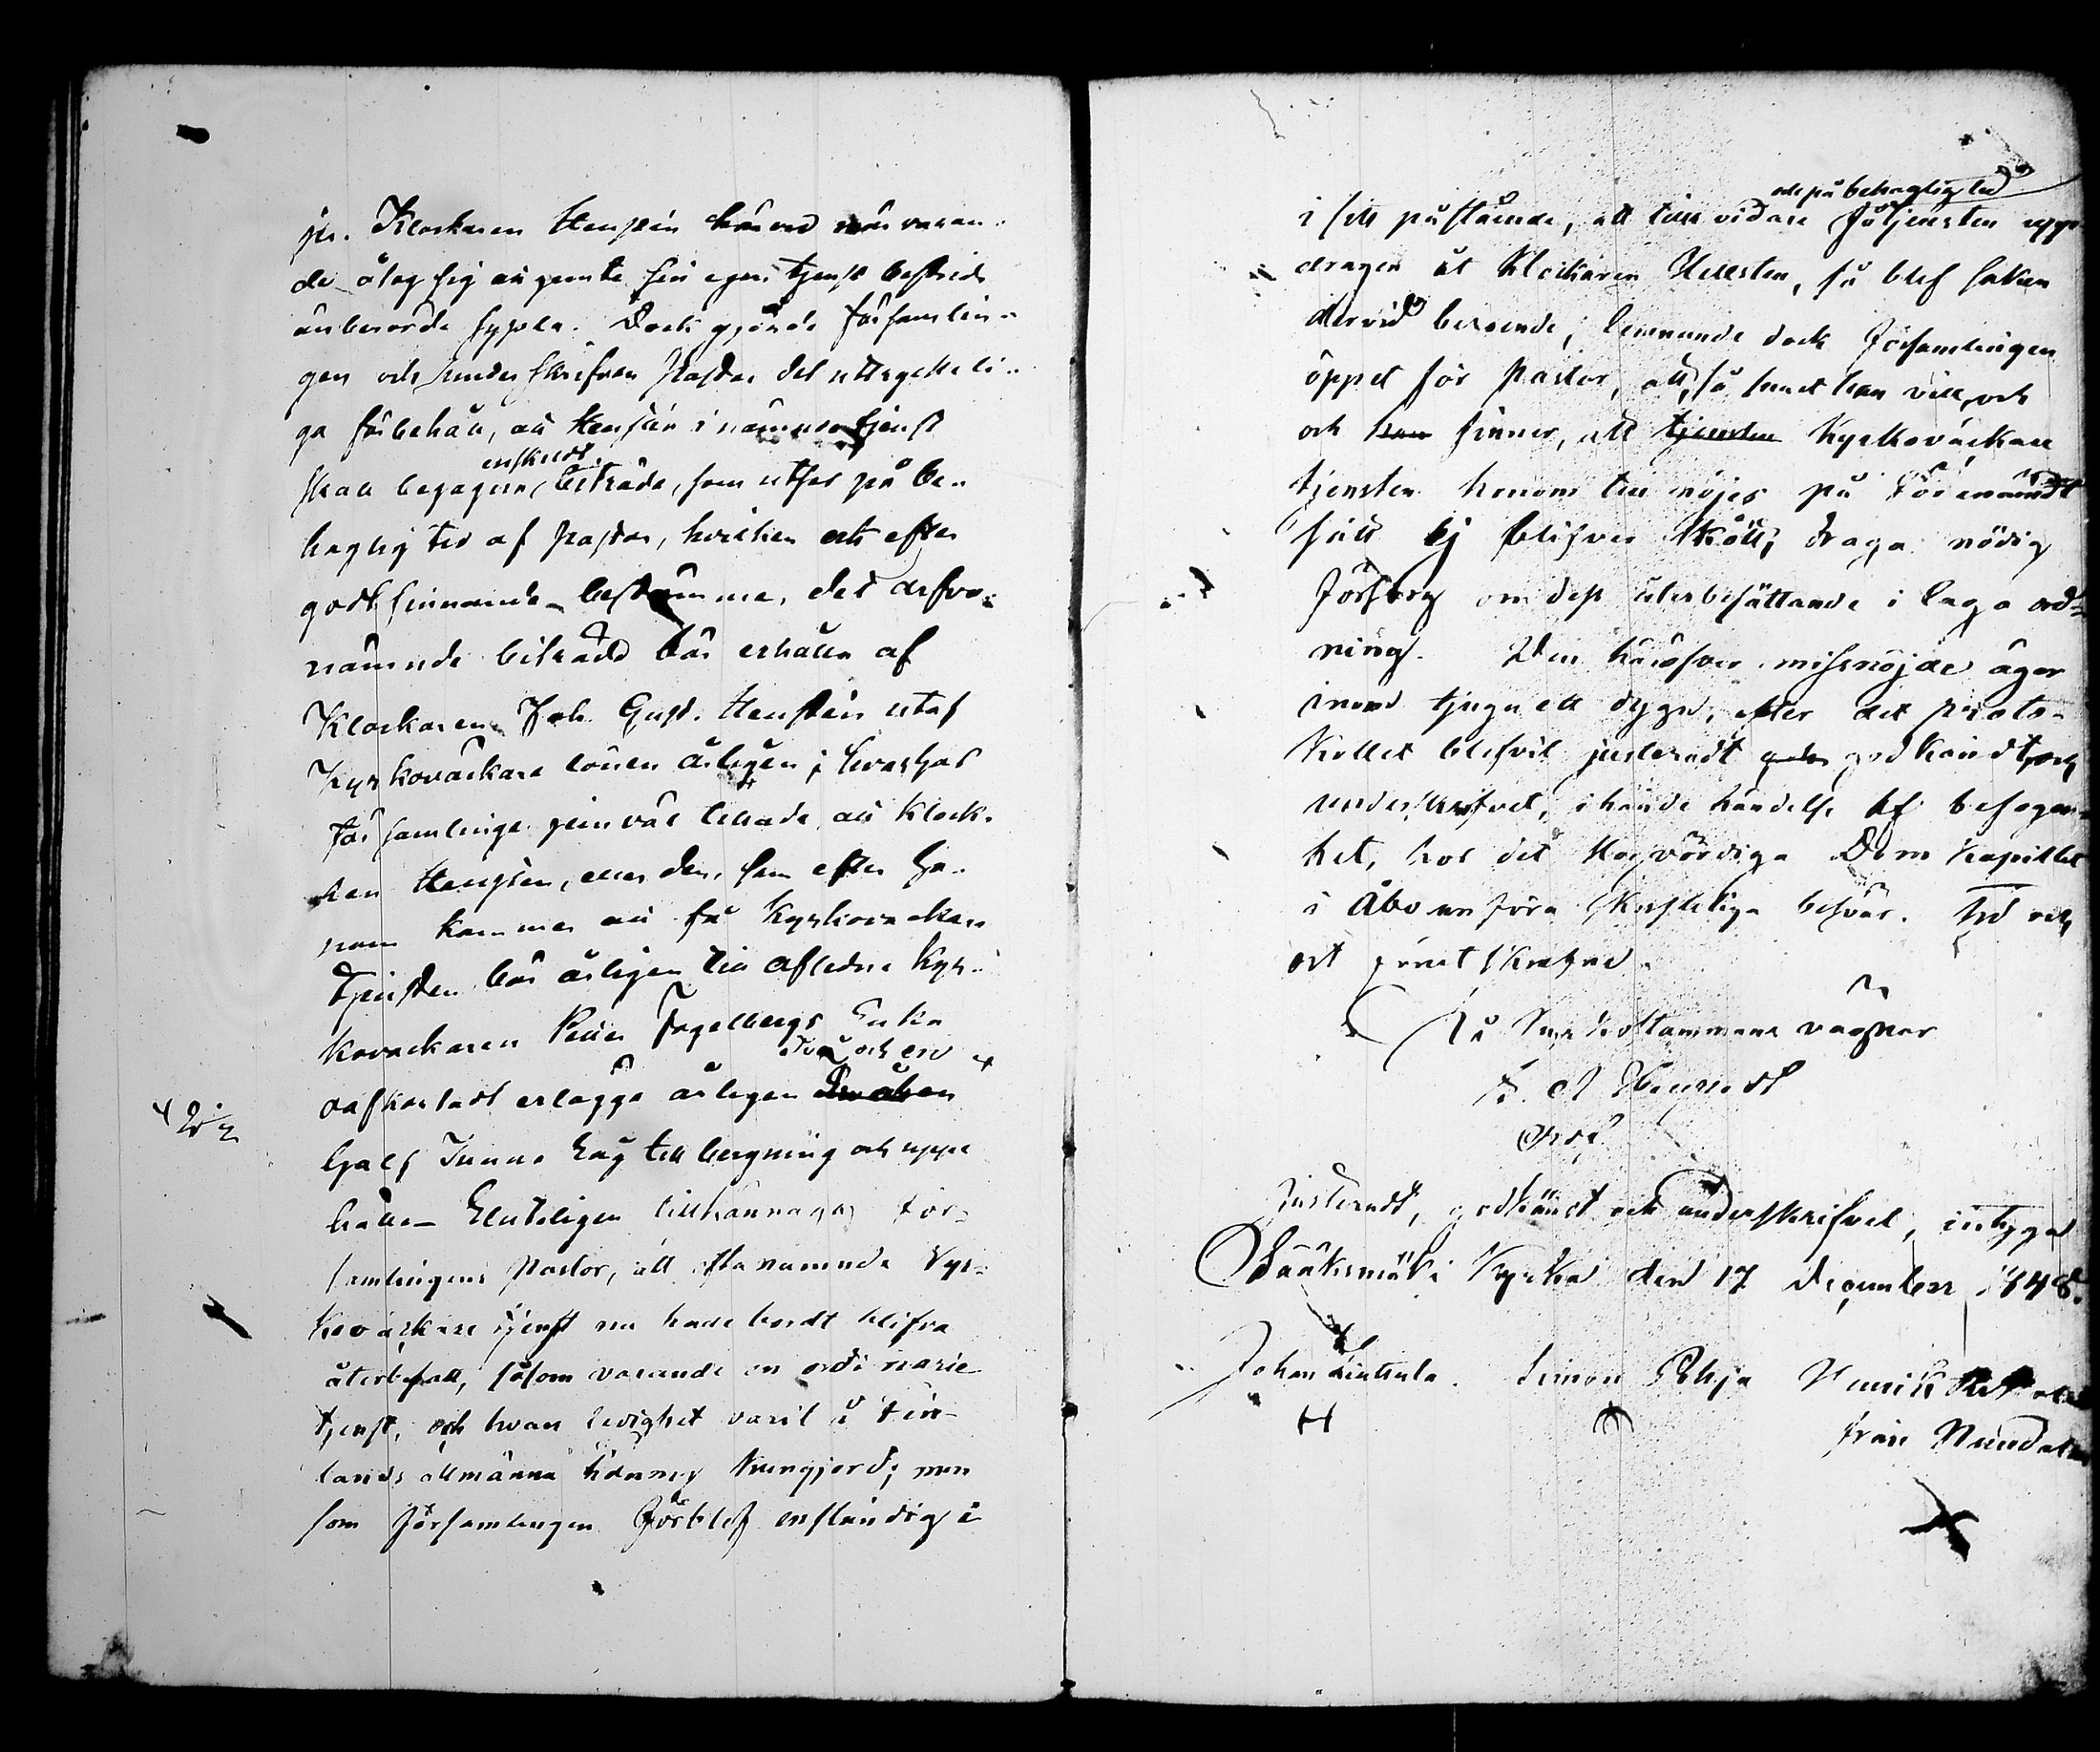 jr. Klockaren Stensén härvid närvaran-
de, åtog sig att jemte sin egen tjenst bestrida
anberörde syssla. Dock gjorde församlin-
gen och underskrifven Pastor det uttrykeli-
ga förbehåll, att Stensén i nämnda tjenst
enskildt
skall begagna biträde, som utses på be-
haglig tid af Pastor, hvilken ock efter
godtfinnande bestämme, det ofva-
nämnde biträde bör erhålla af
Klockaren Joh. Gust. Stensén utaf
Kyrkoväckare lönen årligen;
församlinge tillade, att Klock-
aren Stensén, eller den, som efter ho-
nom kommer att få Kyrkoväckare
tjensten bör årligen till aflidne Kyr-
koväckaren Petter Fagelbergs Enka
två och en
oafkortadt erlägga årligen
× 2 1/2
half Tunna Råg till bergning och uppe
hälle. Sluteligen tillkännagaf För-
samlingens Pastor, att ofta nämnde Kyr-
koväckare tjenst nu hade bordt blifva
återbesatt, såsom varande en ordinarie
tjenst, och hvars ledighet varit i Fin-
lands allmänna Tidning kungjord; men
som Församlingen Förblef enständig i
och på behaglig tid
i sitt påstående, att tills vidare få tjensten upp-
dragen åt Klockaren Stensten, så blef saken
dervid beroende; lemnande dock Församlingen
öppet för Pastor, att, så snart han vill och
och finner, att tjensten Kyrkoväckare
tjensten honom till nöjes på Förenämndt
sätt ej blifver skött, draga nödig
försorg om dess återbesättande i laga ord-
ning. Den häröfver missnöjde äger
inom tjuguett dygn, efter det proto-
kollet blifvit justeradt godkändt och
underskrifvet, i hände händelse af befogen-
het, hos det Högvördiga Dom Kapitlet
i Åbo anföra skrifteliga besvär. Tid och
ort förut skrefne.
På Sockenstämmans vägnar
F. A.
Ord:
Justeradt, godkändt och underskrifvet, intygar
Sääksmäki Kyrka den 17 December 1848.
Johan Lintula. Simon Pohja Henrik
från